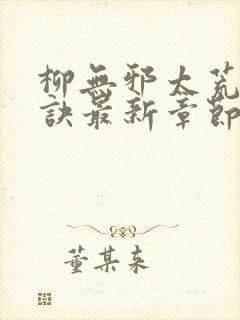 柳無邪太荒
訣最新章節
董某来